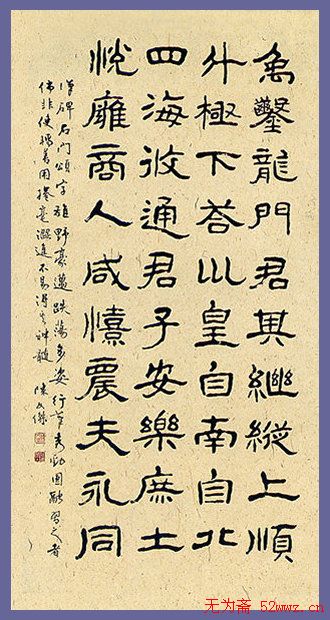 禹鑿龍門君其繼縱上順
斗極下荅巛皇自南自北
四海攸通君子安樂庶士
悅廱商人咸憘農夫永同
漢碑石門頌字雄野豪邁跌蕩多姿行筆秀勁圓融習之者
非使用捲毫澀進不易得其神髓 陳
无为斋 52wwz.cn